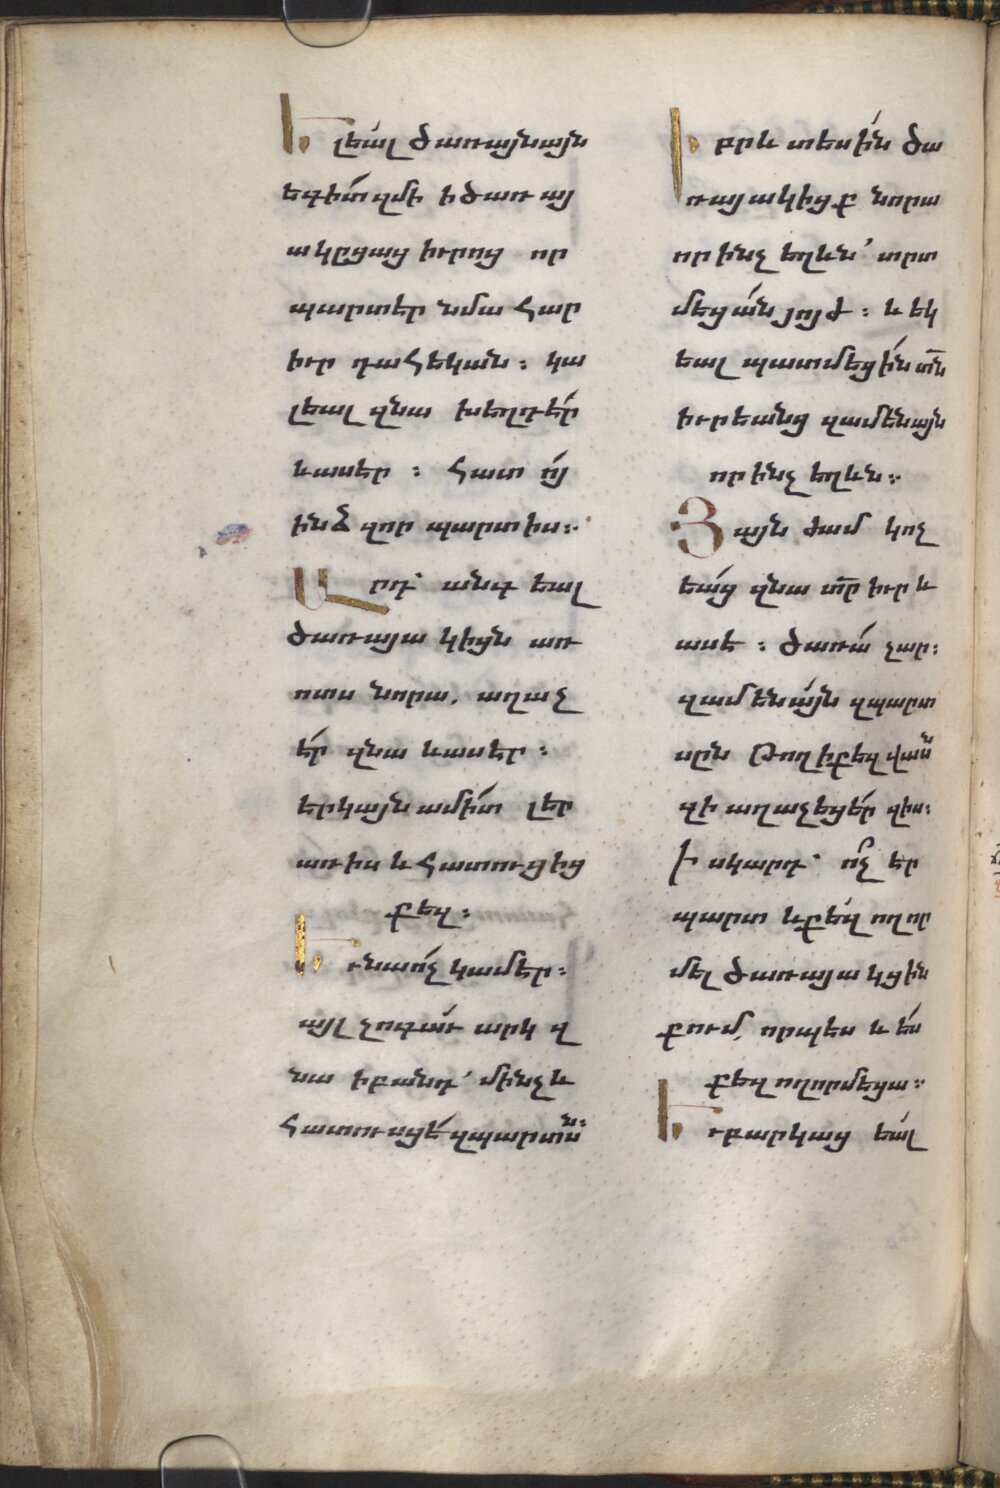 Ելեալ ծառայնայն
եգիտ զմի ի ծառ այ
ակըցաց իւրոց որ
պարտէր նմա հար
իւր դահեկան։ կա
լեալ զնա խեղդէր
և ասէր։ հատ ո՛յ
ինձ զոր պարտիս։
Արդ՝ անգ եալ
ծառայա կիցն առ
ոտս նորա. աղաչ
էր զնա և ասէր։
երկայն ամիտ լեր
առ իս և հատուցից
քեզ։
Եւ նա ո՛չ կամէր։
այլ չոգաւ արկ զ
նա ի բանդ՝ մինչև
հատուսցէ զպարտսն։
Իբրև տեսին ծա
ռայակիցք նորա
որ ինչ եղևն՝ տրտ
մեցան յոյժ։ և եկ
եալ պատմեցին տն
իւրեանց զամենայն
որ ինչ եղևն։
Յայն ժամ կոչ
եաց զնա տր իւր և
ասէ։ ծառա չար։
զամենայն զպարտ
սըն թողի քեզ վասն
զի աղաչեցեր զիս։
Իսկ արդ՝ ո՛չ էր
պարտ և քեզ ողոր
մել ծառայակցին
քում. որպես և ես
քեզ ողորմեցա։
Եւ բարկաց եալ